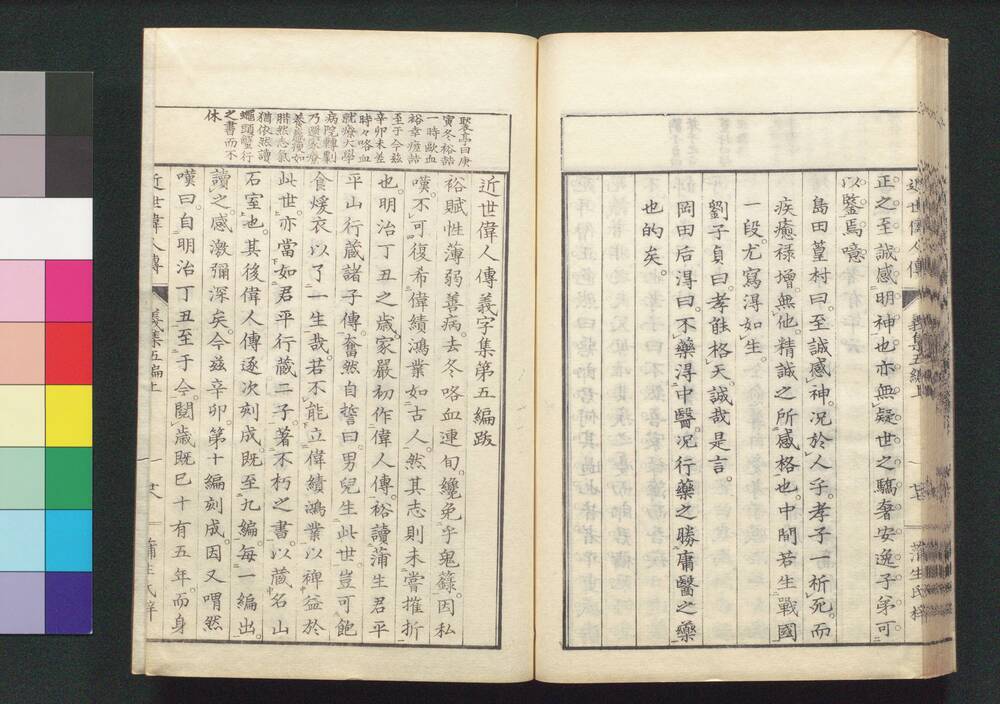 正之至誠感明神也亦無疑世之驕奢安逸子弟可
以鑒焉噫
島田篁村曰至誠感神況於人乎孝子一祈死而
疾癒祿增無他精誠之所感格也中間若生戰國
一段尤寫得如生
劉子貞曰孝能格天誠哉是言
岡田后得曰不藥得中醫況行藥之勝庸醫之藥
也的矣
近世偉人傳義字集第五編跋
裕賦性薄弱善病去冬咯血連旬纔免乎鬼籙因私
嘆不可復希偉績鴻業如古人然其志則未嘗摧折
也明治丁丑之歲家嚴初作偉人傳裕讀蒲生君平
平山行藏諸子傳奮然自誓曰男兒生此世豈可飽
食煖衣以了一生哉若不能立偉績鴻業以裨益於
此世亦當如君平行藏二子著不朽之書以藏名山
石室也其後偉人傳逐次刻成既至九編每一編出
讀之感激彌深矣今茲辛卯第十編刻成因又喟然
嘆曰自明治丁丑至于今閱歲既已十有五年而身
褧亭曰庚
寅冬裕喆
一時歐血
裕幸瘥喆
至于今茲
辛卯未差
時々咯血
就療大學
病院
猶依然讀
蠅頭蟹行
之書而不
休
近世偉人傳
義集五編上
蒲生氏梓